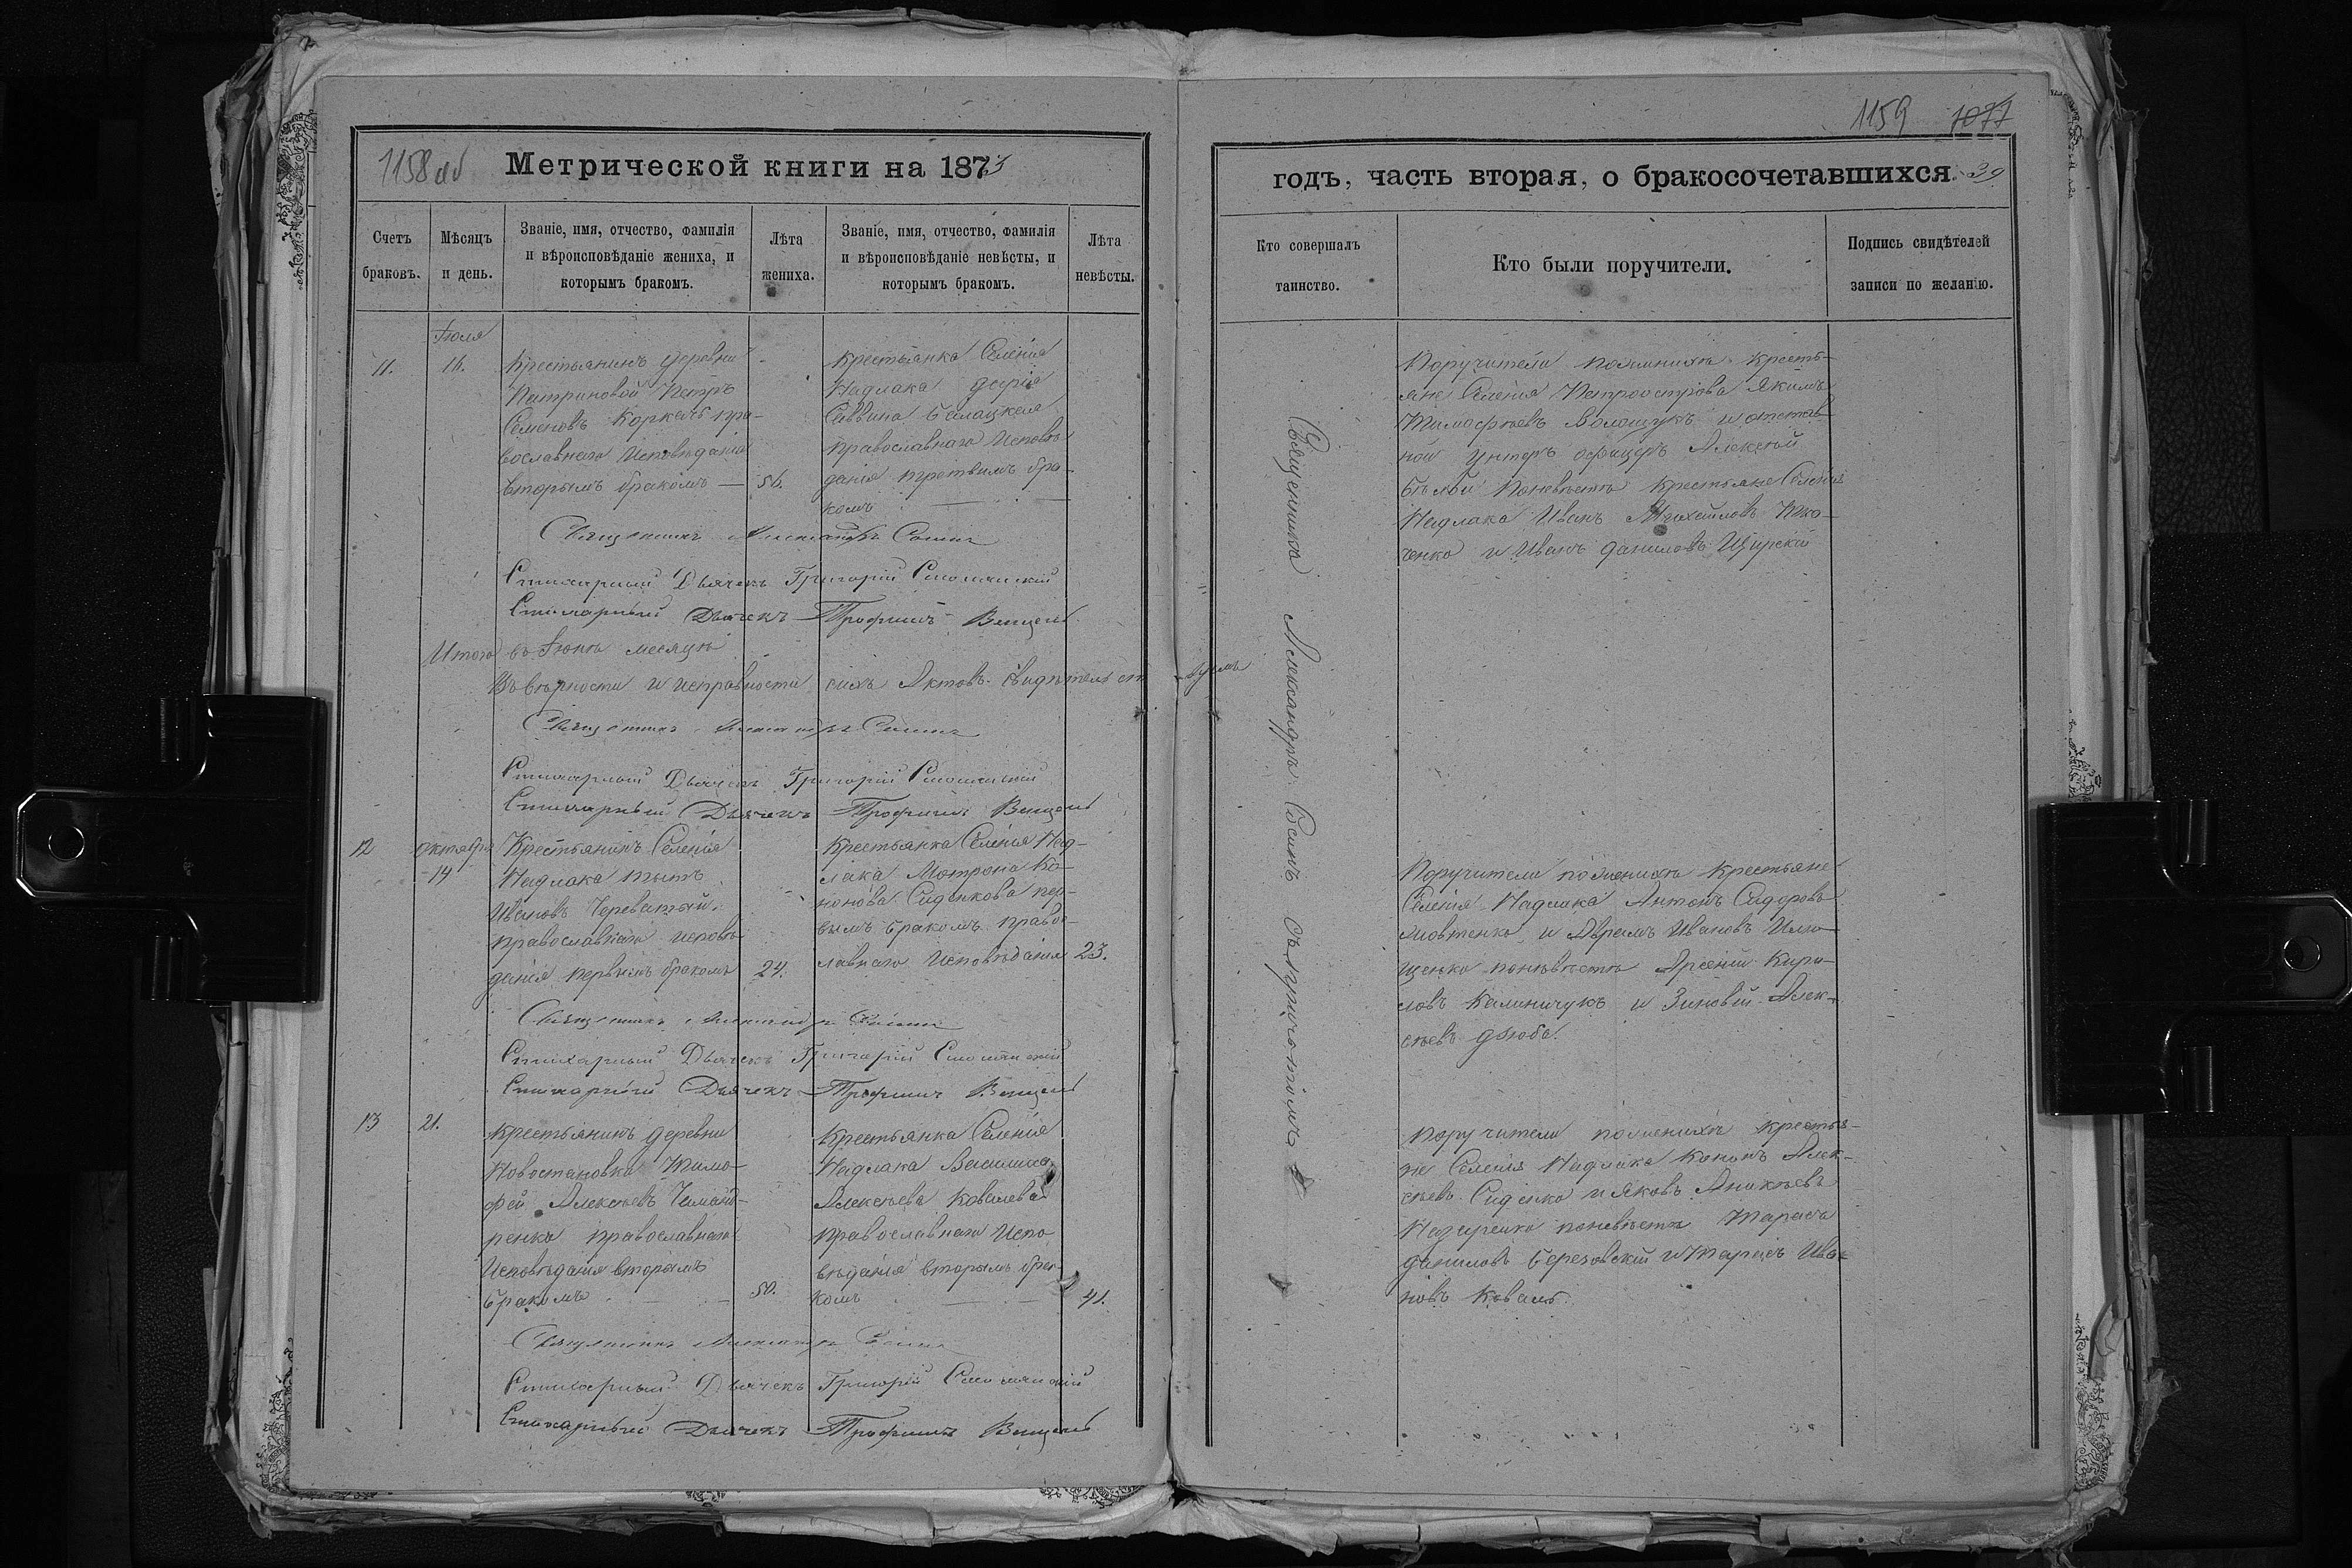 1158 об
Метрической книги на 1873
Счетъ браковъ.
Мѣсяцъ и день.
Званіе, имя, отчество, фамилія и вѣроисповѣданіе жениха, и которымъ бракомъ.
Лѣта жениха.
Званіе, имя, отчество, фамилія и вѣроисповѣданіе невѣсты, и которымъ бракомъ.
Лѣта невѣсты.
Іюля
11. 16.
Крестьянинъ деревни
Петръ
Семеновъ пра-
вославнаго Исповѣданія
вторымъ бракомъ — 56.
Крестьянка Селенія
Надлака Дарія
Саввина
православнаго Исповѣ
данія третьимъ бра-
комъ
Священникъ Александръ
Стихарный Дьячекъ Григорій
Стихарный Дьячекъ Трофимъ
Итого въ Іюлѣ месяцѣ
Въ вѣрности и исправности сихъ Актовъ свидѣтельст вуемъ
Священникъ Александръ
Стихарный Дьячекъ Григорій
Стихарный Дьячекъ Трофимъ
12 октября
14
Крестьянинъ Селенія
Надлака
Ивановъ Череватый
православнаго исповѣ
данія первымъ бракомъ 24.
Крестьянка Селенія Над-
лака Мотрона Ко-
нонова Сиденкова пер-
вымъ бракомъ правос
лавнаго Исповѣданія 23.
Священникъ Александръ
Стихарный Дьячекъ Григорій
Стихарный Дьячекъ Трофимъ
13 21.
Крестьянинъ деревни
Новостановка Тимо-
фей Алексѣевъ
православнаго
Исповѣданія вторымъ
бракомъ — 50.
Крестьянка Селенія
Надлака Василиса
Алексѣева Ковалева
православнаго Испо
вѣданія вторымъ бра
комъ — 41.
Священникъ Александръ
Стихарный Дьячекъ Григорій
Стихарный Дьячекъ Трофимъ
1159 1077
годъ, часть вторая, о бракосочетавшихся. 39
Кто совершалъ таинство.
Кто были поручители.
Подпись свидѣтелей записи по желанію.
Священникъ Александръ съ причтомъ
Поручители по женихѣ кресть-
яне Селенія Петроострова Якимъ
Тимофѣевъ Волощукъ и отстав
ной Унтеръ офицеръ Алексѣй
по невѣстѣ крестьяне Селенія
Надлака Иванъ Михайловъ Тка-
ченко и Иванъ Даниловъ
Поручители по женихѣ крестьяне
Селенія Надлака Антонъ Сидоровъ
и Аврамъ Ивановъ Илю-
щенко по невѣстѣ Арсеній Кири-
ловъ Калиничукъ и Зиновій Алек-
сѣевъ Дзюба.
Поручители по женихѣ крестья-
не Селенія Надлака Кононъ Алек-
сѣевъ Сиденко и Яковъ Аникѣевъ
Назаренко по невѣстѣ Тарасъ
Даниловъ Березовскій и Тарасъ Ива-
новъ Коваль.